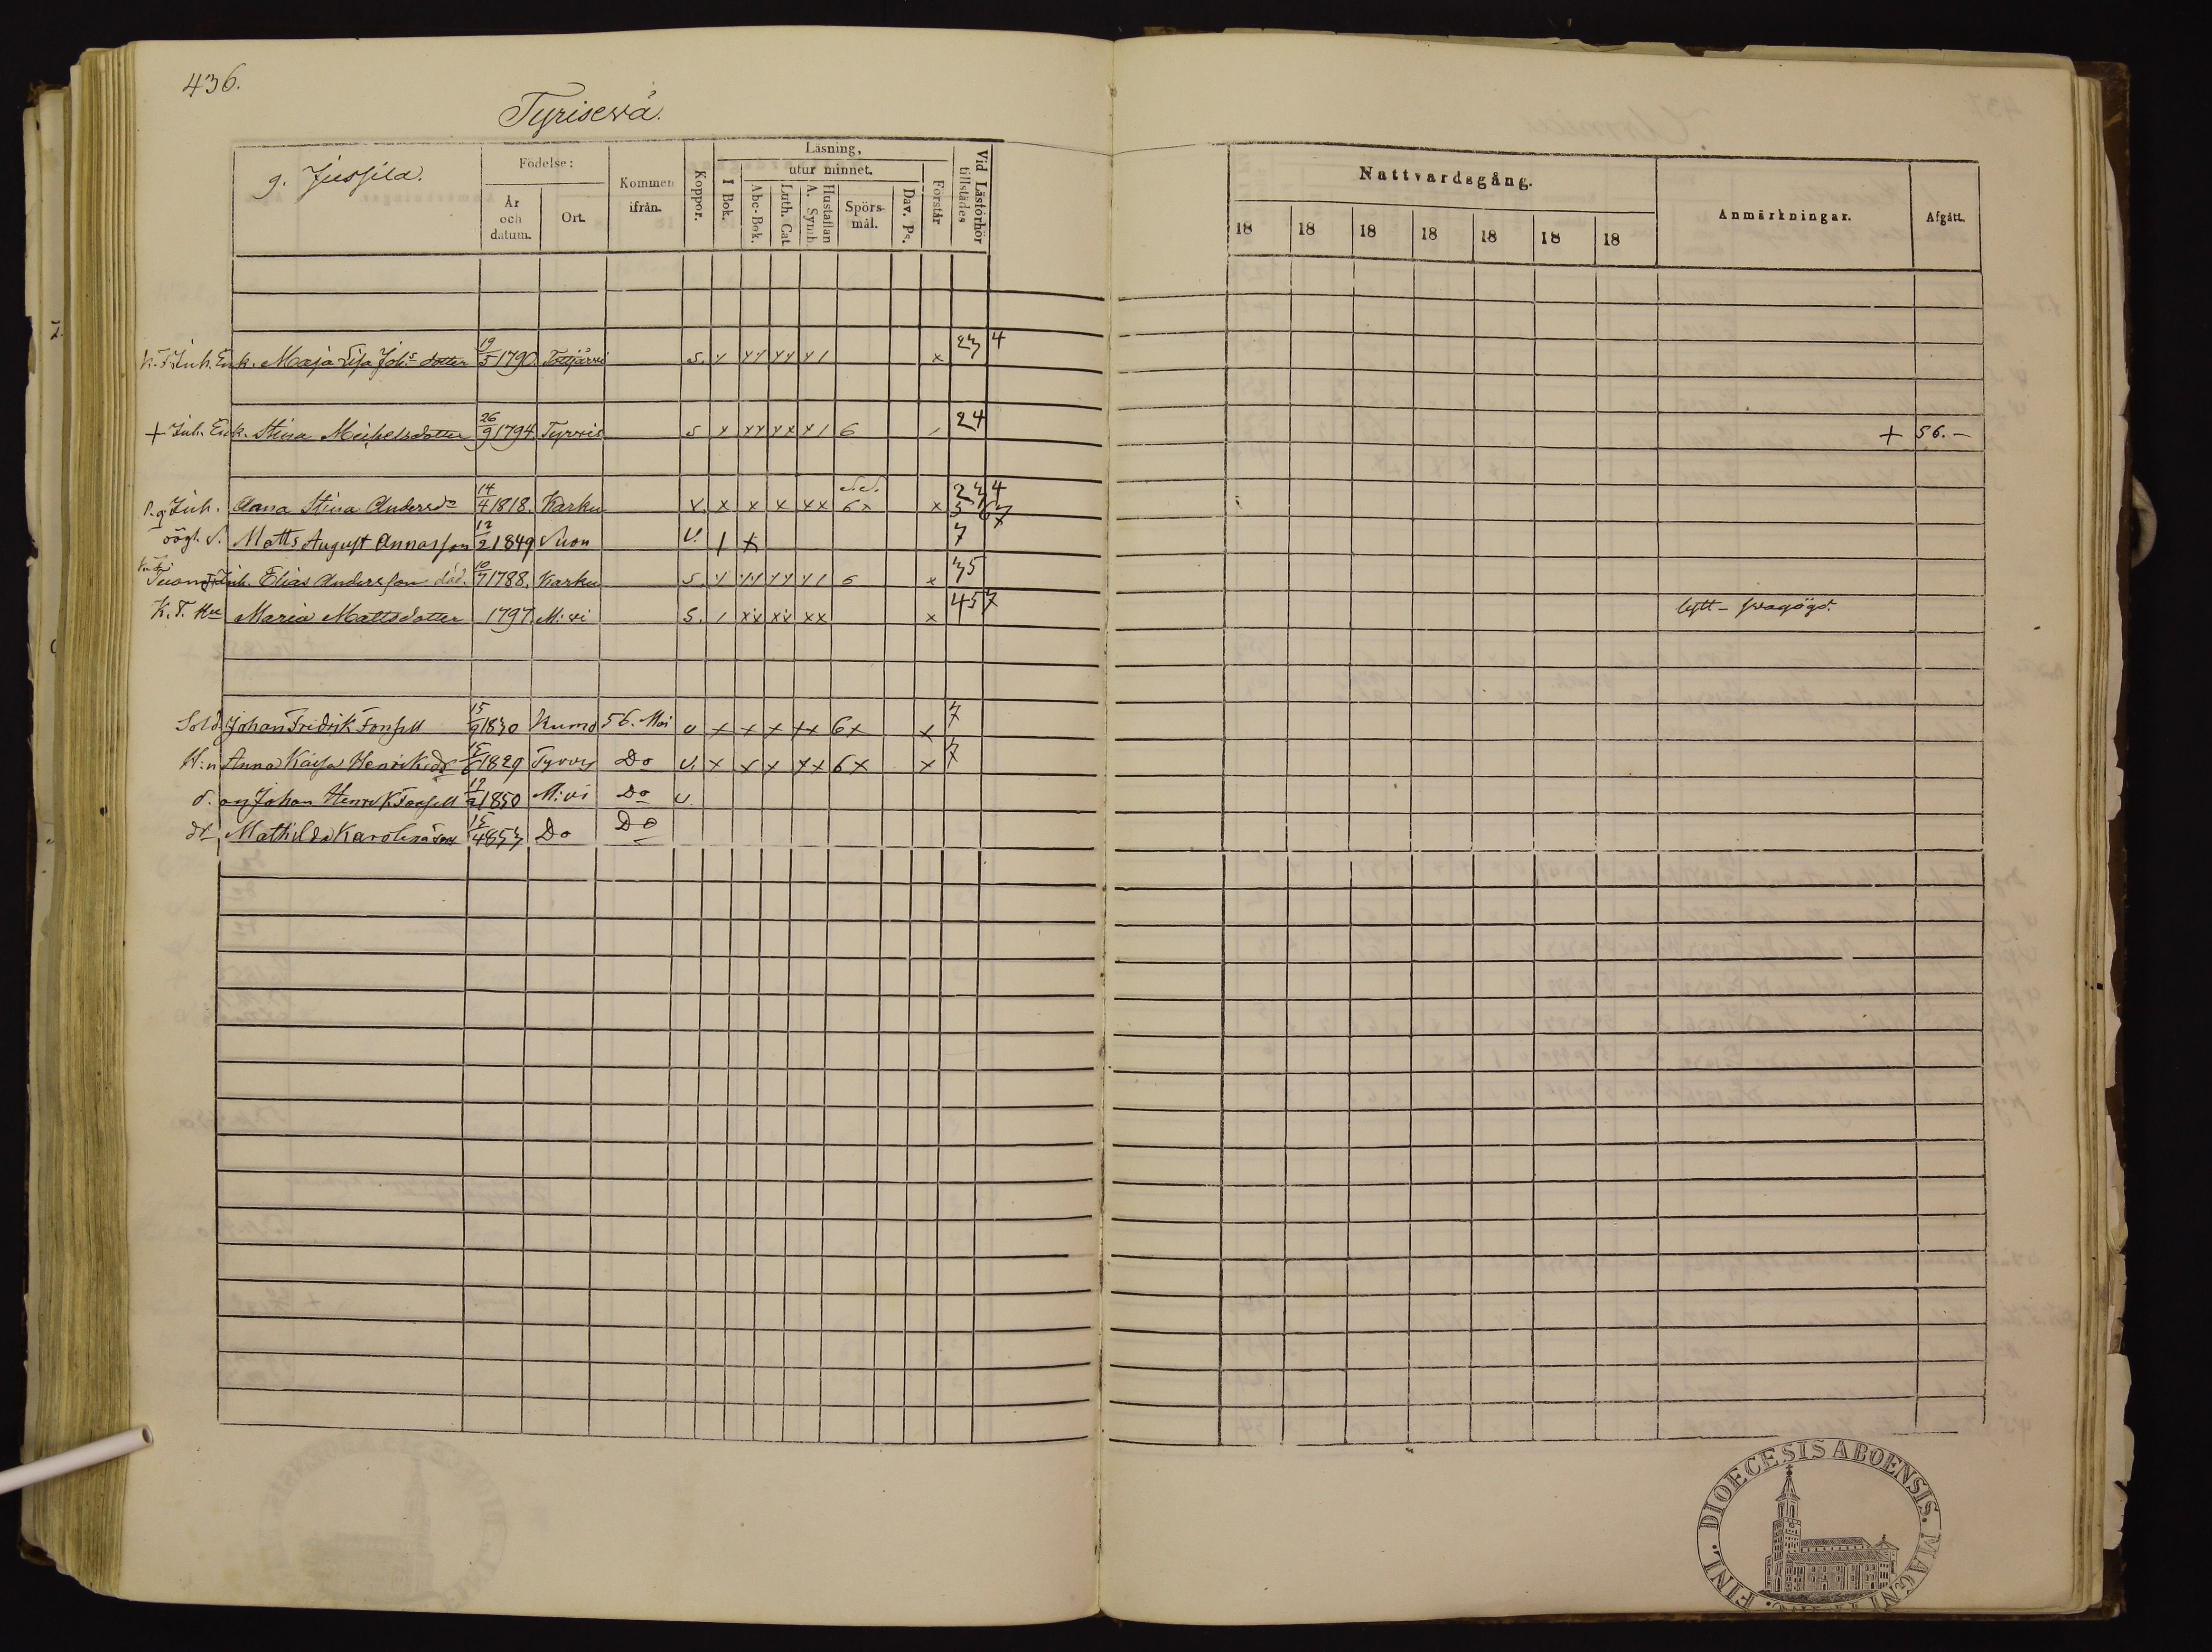 436.
Tyrisevä.
g. Jussila.
Födelse:
År och datum.
Ort.
Kommen ifrån.
Koppor.
Läsning,
I Bok.
utur minnet.
Abc-Bok.
Luth. Cat.
Hustaflan A. Symb.
Spörsmål.
Dav. Ps.
Förstår
Vid Läsförhör tillstädes
Nattvardsgång.
18 18 18 18 18 18 18
Anmärkningar.
Afgått.
Inh. Enk. Maja Lisa Joh:s dotter 19/5 1790. Tottijärvi S. 23 4
+ Inh. Enk. Stina Michelsdotter 26/9 1794 Tyrvis S x xx xx x 1 6 1 24 + 56.-
Inh. Anna Stina Andersd:r 14/4 1818. Karku V. x x x xx 6x x 234 567
oägt. S. Matts August Annasson 12/2 1849 Suon V. 1 x 7
Inh. Elias Andersson död. 10/7 1788. Karku S. 6 x 35
K. T. Maria Mattsdotter 1797 M:vi S. 1 xx xx xx x 457 lytt-
Sold. Johan Fredrik Fonsell 15/9 1830 Kumo 56. Moi v x x x xx 6x x 7
H:n Anna Kaisa Henriksdr 15/6 1829 Tyrvis Do v. x x x xx 6x x 7
S. Johan Henrik Fonsell 1850 M:vi Do v.
dt Mathilda Karolina 15/4 1853 Do Do
FINL. DIOECESIS ABOENSIS. MAGNI